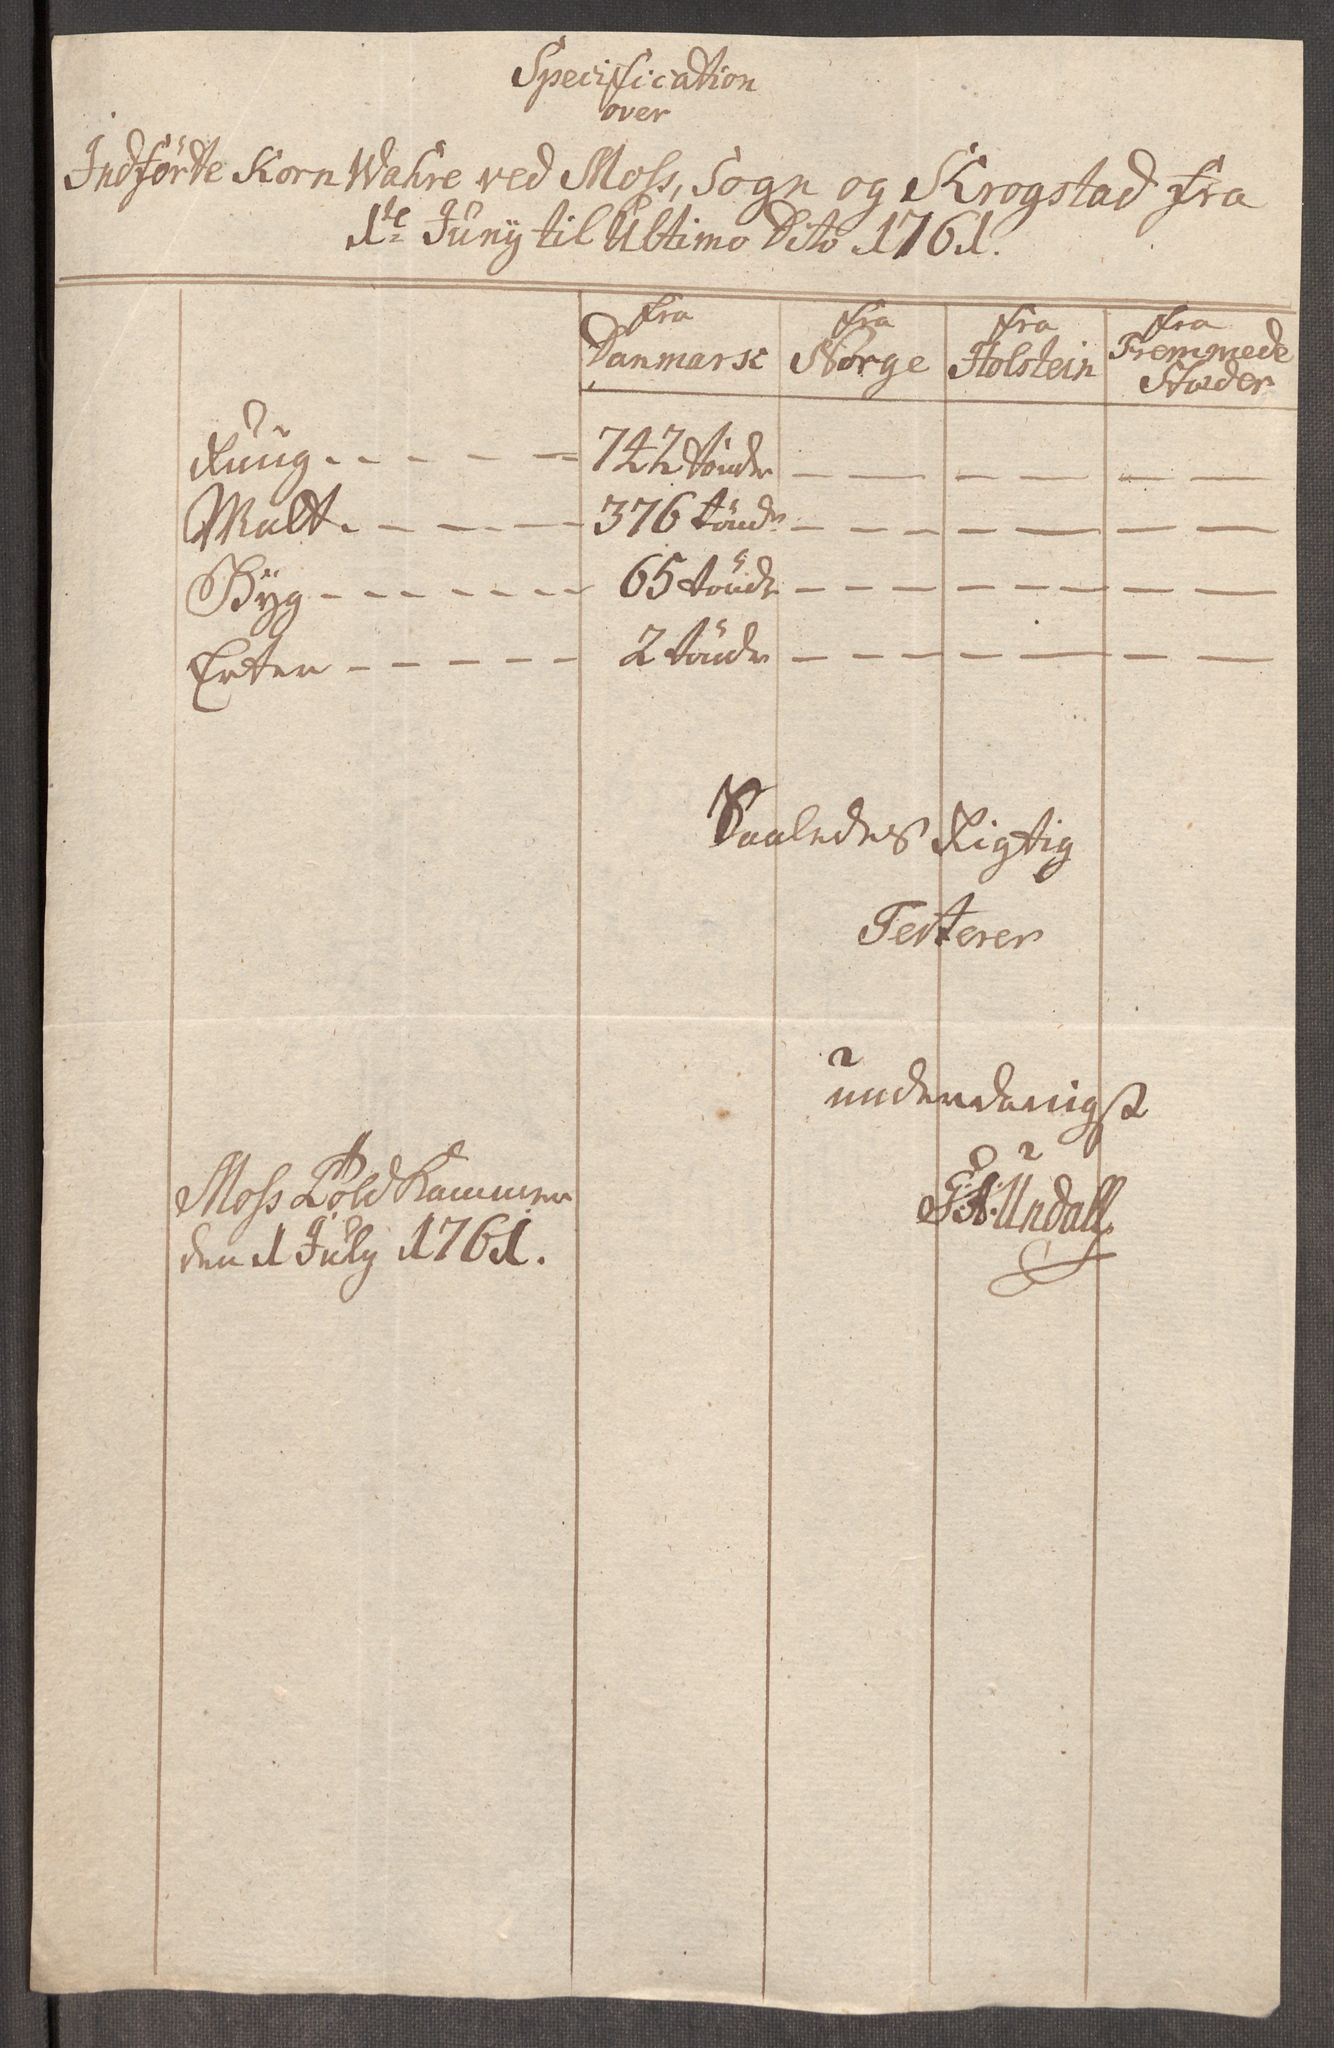 Specification
over
Indførte Korn Wahre ved Moss, Sogn og Krogstad fra
1te Juny til Ultimo Dito 1761.
fra Danmark fra Norge fra Holstein fra Fremmede Stæder
Rug - - - - - 742 tönder — — — — — —
Malt - - - - - 376 tönder — — — — — —
Byg - - - - - 65 tönder — — — — — —
Erter - - - - - 2 tönder — — — — — —
Saaledes Rigtig
Testerer
underdanigst
Moss Told Kammer
den 1 July 1761.
Undall